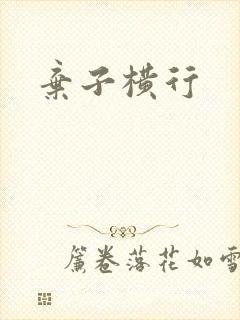 棄子横行
簾卷落花如雪